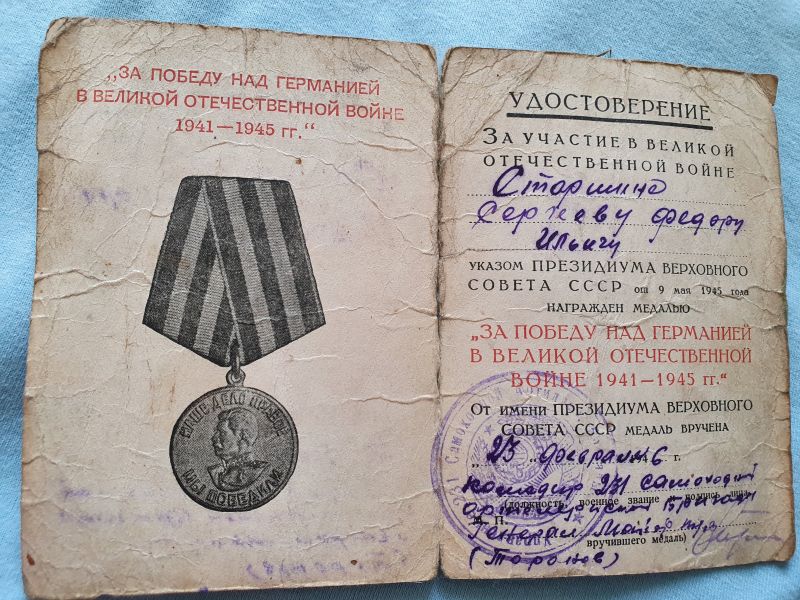 „ЗА ПОБЕДУ НАД ГЕРМАНИЕЙ
В ВЕЛИКОЙ ОТЕЧЕСТВЕННОЙ ВОЙНЕ
1941—1945 гг.“
НАШЕ ДЕЛО ПРАВОЕ
МЫ ПОБЕДИЛИ
УДОСТОВЕРЕНИЕ
ЗА УЧАСТИЕ В ВЕЛИКОЙ
ОТЕЧЕСТВЕННОЙ ВОЙНЕ
Старшина
Сергееву Федору
Ильичу
УКАЗОМ ПРЕЗИДИУМА ВЕРХОВНОГО
СОВЕТА СССР от 9 мая 1945 года
НАГРАЖДЕН МЕДАЛЬЮ
„ЗА ПОБЕДУ НАД ГЕРМАНИЕЙ
В ВЕЛИКОЙ ОТЕЧЕСТВЕННОЙ
ВОЙНЕ 1941—1945 гг.“
ОТ ИМЕНИ ПРЕЗИДИУМА ВЕРХОВНОГО
СОВЕТА СССР МЕДАЛЬ ВРУЧЕНА
„23“ февраля 1946 г.
Командир 231 самоходной
(должность, военное звание и подпись лица,
артиллерийской бригады
М. П.
Генерал-Майор
вручившего медаль)
(Торопов)
231 Самоходной